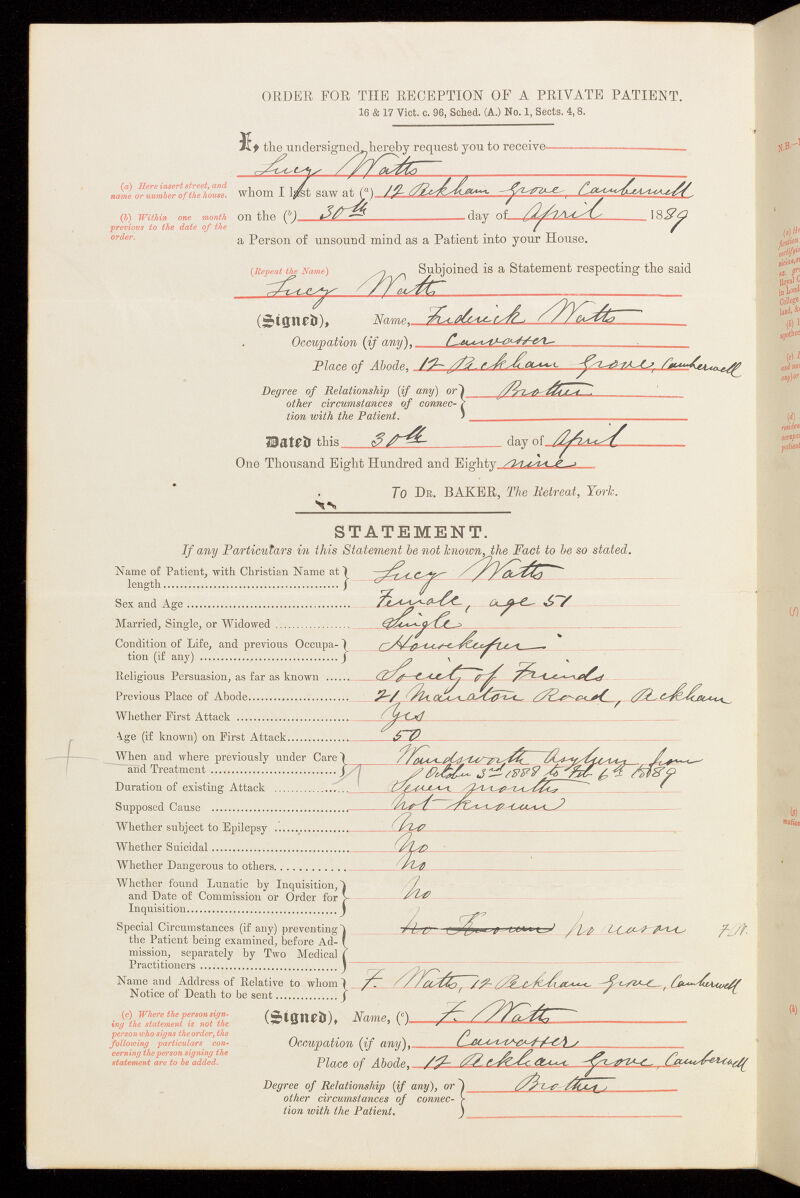 ORDER FOR THE RECEPTION OF A PRIVATE PATIENT.
16 & 17 Vict. c. 96, Sched. (A.) No. 1, Sects. 4, 8.
I, the undersigned, hereby request you to receive
Lucy Watts
(a) Here insert street, and name or number of the house.
whom I last saw at (a) 12 Peckham Grove, Camberwell
(b) Within one month previous to the date of the order.
on the (b) 30th day of April 1889
a Person of unsound mind as a Patient into your House.
(Repeat the Name) Subjoined is a Statement respecting the said
Lucy Watts
(Signed), Name, Frederick Watts
Occupation (if any), Canvasser
Place of Abode, 12 Peckham Grove, Camberwell
Degree of Relationship (if any) or Brother
other circumstances of connec-
tion with the Patient.
Dated this 30th day of April
One Thousand Eight Hundred and Eighty nine
To Dr. BAKER, The Retreat, York.
STATEMENT.
If any Particulars in this Statement be not known, the Fact to be so stated.
Name of Patient, with Christian Name at Lucy Watts
length
Sex and Age Female, age 51
Married, Single, or Widowed Single
Condition of Life, and previous Occupa- Housekeeper
tion (if any)
Religious Persuasion, as far as known Society of Friends
Previous Place of Abode 21 Manaton Road, Peckham
Whether First Attack Yes
Age (if known) on First Attack 50
When and where previously under Care Wandsworth Asylum from
and Treatment October 3rd 1888 to Feb 6th 1889
Duration of existing Attack Seven months
Supposed Cause Not known
Whether subject to Epilepsy No
Whether Suicidal No
Whether Dangerous to others No
Whether found Lunatic by Inquisition, No
and Date of Commission or Order for
Inquisition
Special Circumstances (if any) preventing no Known No reason F.W.
the Patient being examined, before Ad-
mission, separately by Two Medical
Practitioners
Name and Address of Relative to whom F. Watts, 12 Peckham Grove, Camberwell
Notice of Death to be sent
(c) Where the person sign-
ing the statement is not the
person who signs the order, the
following particulars con-
cerning the person signing the
statement are to be added.
(Signed), Name, (c) F. Watts
Occupation (if any), Canvasser
Place of Abode, 12 Peckham Grove, Camberwell
Degree of Relationship (if any), or Brother
other circumstances of connec-
tion with the Patient.